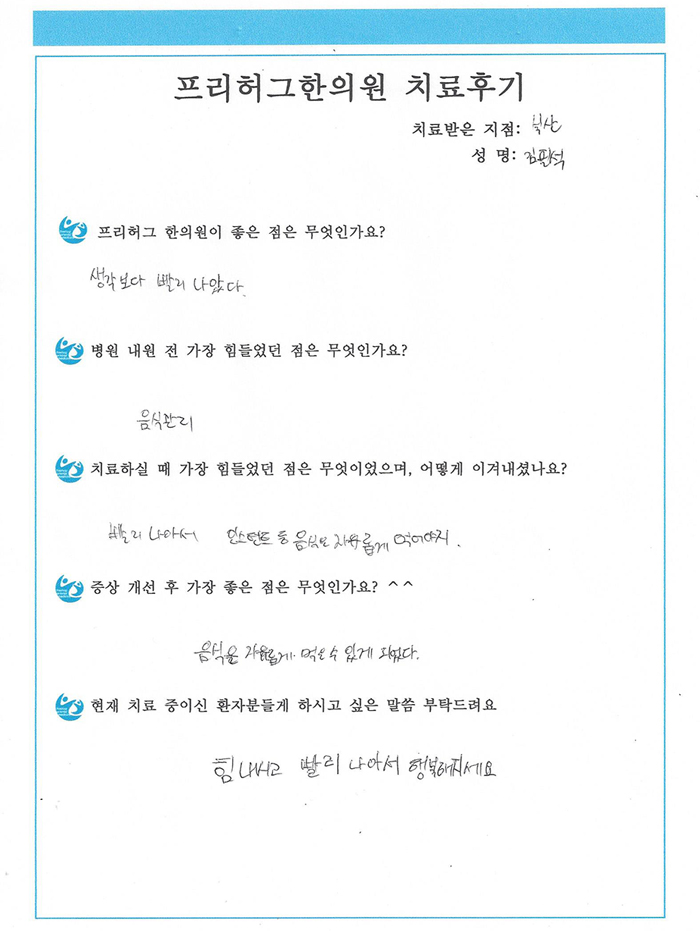 프리허그한의원 치료후기
치료받은 지점:
성 명:
프리허그 한의원이 좋은 점은 무엇인가요?
생각보다 빨리 나았다.
병원 내원 전 가장 힘들었던 점은 무엇인가요?
음식관리
치료하실 때 가장 힘들었던 점은 무엇이었으며, 어떻게 이겨내셨나요?
빨리 나아서 인스턴트 등 음식도 자유롭게 먹어야지.
증상 개선 후 가장 좋은 점은 무엇인가요? ^^
음식을 자유롭게 먹을수 있게 되었다.
현재 치료 중이신 환자분들게 하시고 싶은 말씀 부탁드려요
힘내시고 빨리 나아서 행복해지세요